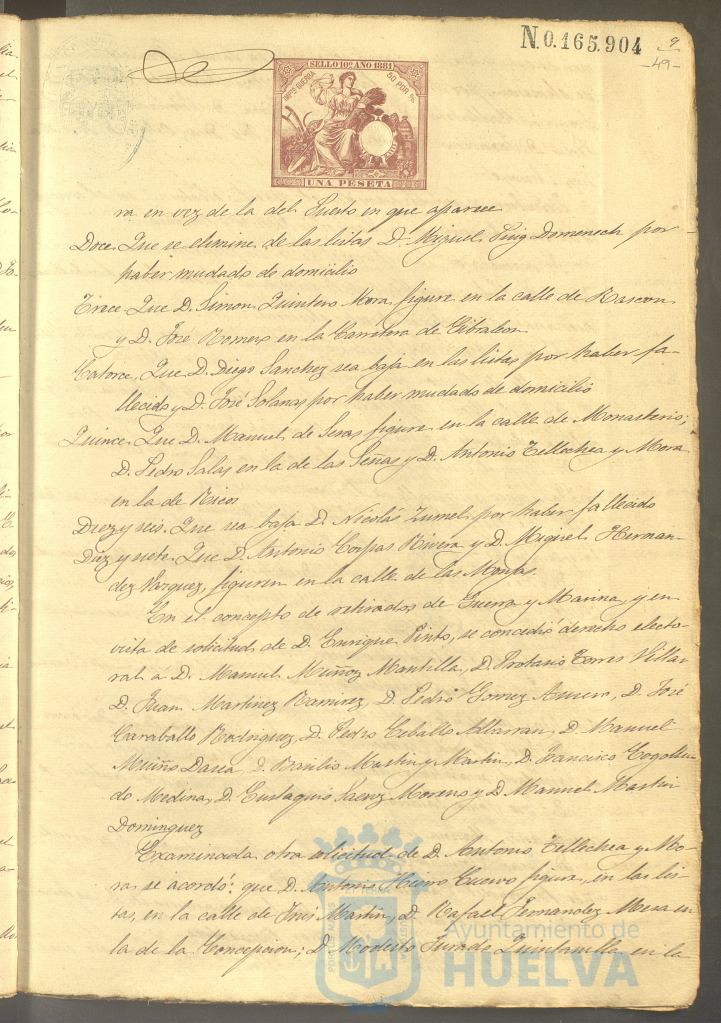 N.0.165.904
9
-49-
SELLO 10º AÑO 1881
IMPº GUERRA
50 POR %
UNA PESETA
ra en vez de la del Puerto en que aparece
Doce. Que se elimine de las listas D. Miguel Puig Domenech por
haber mudado de domicilio
Trece Que D. Simon Quintero Mora figure en la calle de Rascon
y D. José Romero en la Carretera de Gibraleon
Catorce. Que D. Diego Sanchez sea baja en las listas por haber fa-
llecido y D. José Solanas por haber mudado de domicilio
Quince. Que D. Manuel de Seras figure en la calle de Monasterio;
D. Pedro Salas en la de las Señas y D. Antonio Tellechea y Mora
en la de Ricos
Diez y seis. Que sea baja D. Nicolás Zumel por haber fallecido
Diez y siete. Que D. Antonio Corpas Rivera y D. Miguel Hernan-
dez Vazquez, figuren en la calle de las Monjas.
En el concepto de retirados de Guerra y Marina, y en
vista de solicitud de D. Enrique Pinto, se concedió derecho electo-
ral á D. Manuel Muñoz Mantilla, D. Protasio Torres Villar
D. Juan Martinez Ramirez, D. Pedro Gomez, D. José
Caraballo Rodriguez, D. Pedro Ceballo Albarran, D. Manuel
Muiño, D. Basilio Martin y Martin, D. Francisco Cogollu-
do Medina, D. Eustaquio Saenz Moreno y D. Manuel Martin
Dominguez
Examinada otra solicitud de D. Antonio Tellechea y Mo-
ra se acordó: que D. Antonio Hierro Cuervo figura, en las lis-
tas, en la calle de José Martin, D. Rafael Fernandez Mesa en
la de la Concepcion; D. Modesto Jurado Quintanilla, en la
Ayuntamiento de
HUELVA